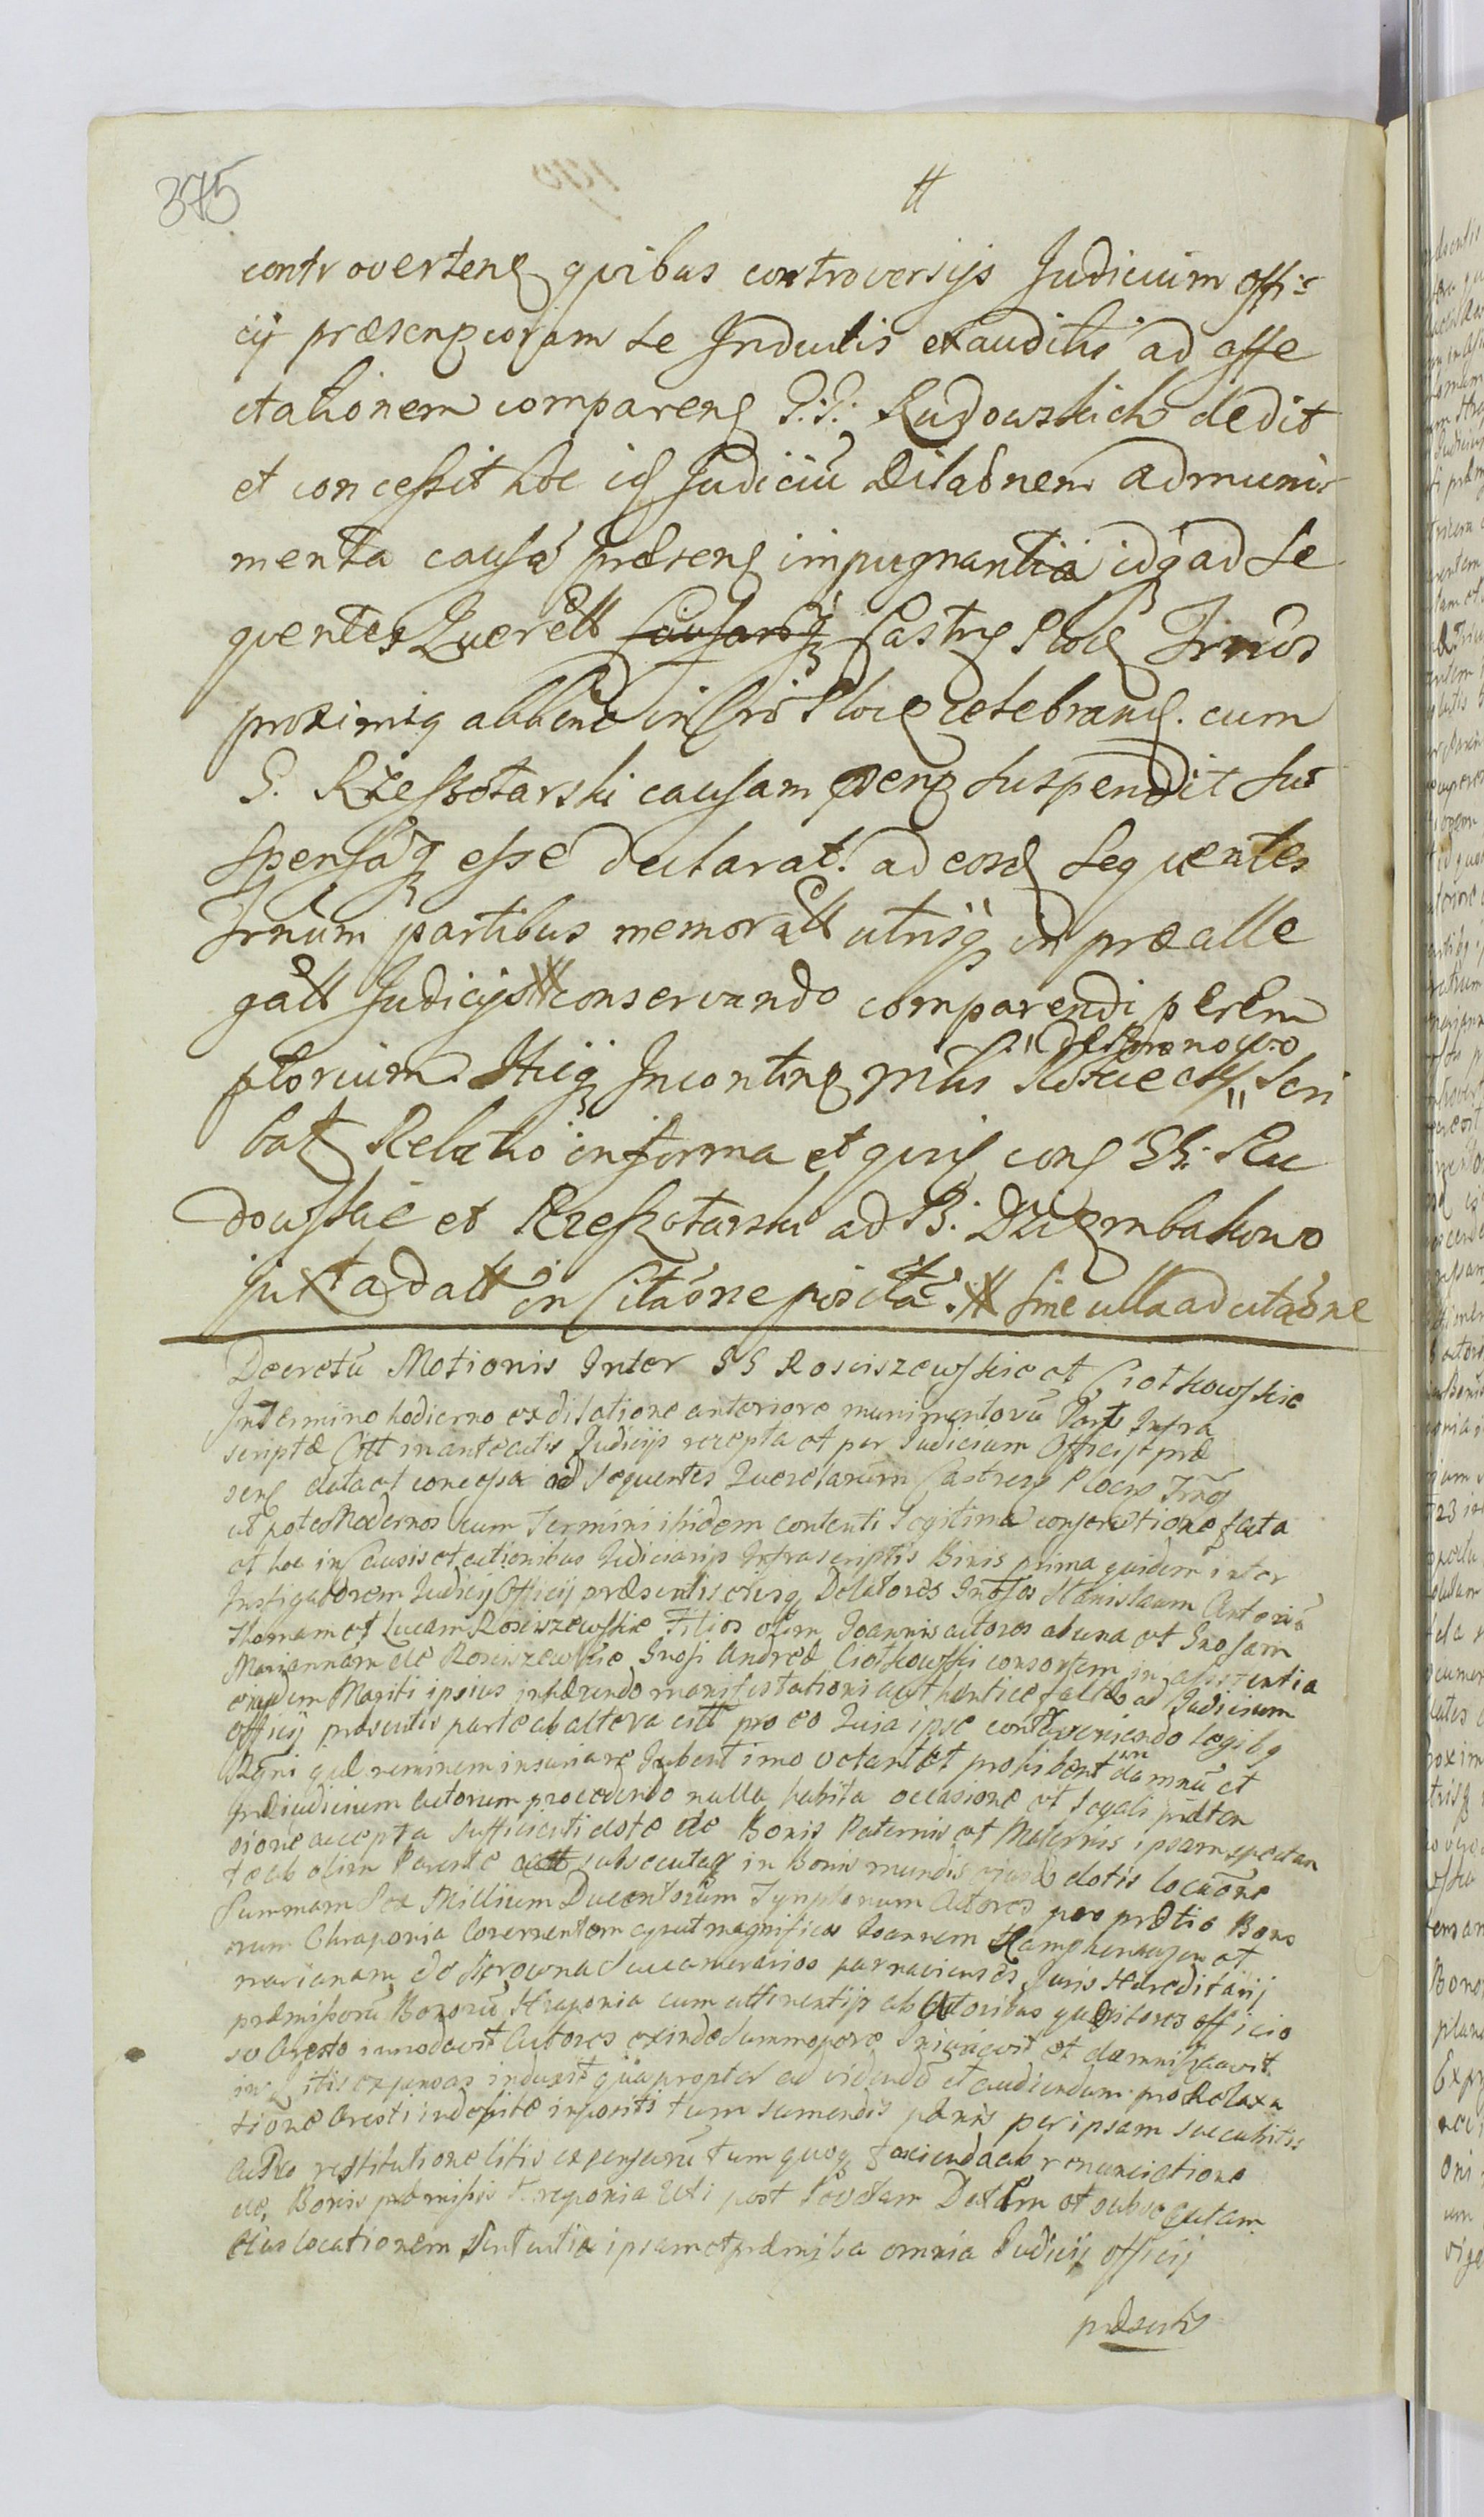 375
controverten quibus controversijs Judicium offi-
cij præsen coram se Inductis et auditis ad affe
ctationem comparen P:P: Rudowskich dedit
et concessit hoc id Judiciũ Dilaõnem ad muni-
menta causã præsen impugnantia idq ad se
quentes Querell Causarũq Castren Ploc Trnos
proximiq abhinc in Cro Ploc celebran. cum
G. Rzeszotarski causam pren suspendit sus
spensãq esse declarat. ad eosd sequentes
Trnum partibus memorall utrisq in præalle
gatt Judicijs conservando comparendi perem
ptorium. Itiq Incontinq
bat Relatio in forma et
dowskie et Rzeszotarski ad B: Dziembakowo
juxta datt in Citaõne . sine ulla ad citaõne
Decretũ Motionis Inter GG Rosciszewskie et Ciotkowskie
In Termino hodierno ex dilatione anteriore munimentorũ Parte Infra
scriptæ Citt in antecitis Judicijs recepta et per Judicium Officij præ
sen data et concessa ad sequentes Querelarum Castren Ploc Trnos
ut pote Modernos cum Termini ibidem contenti legitima conservatione facta
et hoc in Causis et actionibus Judiciarijs Infrascriptis Binis prima quidem inter
Instigatorem Judicij Officij præsentis eiusq Delatores Gnosos Stanislaum Antoniũ
Thomam et Lucam Rosciszewskie Filios olim Joannis actores ab una et Gnosam
Mariannam de Rosciszewskie Gnosi Andreæ Ciotkowski consortem in assistentia
eiusdem Mariti ipsius inhærendo manifestationi authentice factæ ad Judicium
Officij præsentis parte ab altera citt pro eo Quia ipse contraveniendo legibq
Regni quæ neminem iniuriare Jubent imo vetant et prohibent in damnũ et
præjudicium Actorum procedendo nulla habita occasione et legali præten
sione accepta sufficienti dote de Bonis Paternis et Maternis ipsam spectan
te ab olim Parente subsecutaq in Bonis mundis eiusd dotis locãone
Summam Sex Millium Ducentorum Tynphonum Actores pro prætio Bono
rum Chraponia Coverentem aput magnificos Joannem Kamphenauzen et
marianam de Krowna succamerarios parnavienses Juris Hæreditarij
præmissorũ Bonorũ Hraponia cum attinentijs ab Actoribus quæsitores officio
so Aresto innodavit Actores exinde summopere Iniuriavit et damnificavit.
in litis expensas induxit quapropter ad videndũ et audiendum pro Relaxa
tione Aresti indebite impositi tum sumendis pænis per ipsam succubitis
ac Pro restitutione litis expensarũ tum quoq facienda ab renunciatione
de Bonis præmissis Hreponia uti post levatam Dotem et subsecutam
eius locationem sententia ipsam et præmissa omnia Judicij officij
præsentis